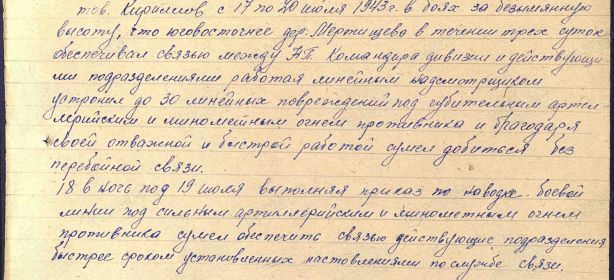 тов. Кириллов с 17 по 20 июля 1943 г. в боях за безымянную
высоту, что юговосточнее дер. Мертищево в течении трех суток
обеспечивал связью между НП Командира дивизии и действующи-
ми подразделениями работая линейным надсмотрщиком
устронил до 30 линейных повреждений под губительным артил-
лерийским и минометным огнем противника и благодаря
своей отважной и быстрой работой сумел добиться без
перебойной связи.
18 в ночь под 19 июля выполняя приказ по наводке боевой
линии под сильным артиллерийским и минометным огнем
противника сумел обеспечить связью действующие подразделения
быстрее сроком установленных наставлениями по службе связи.